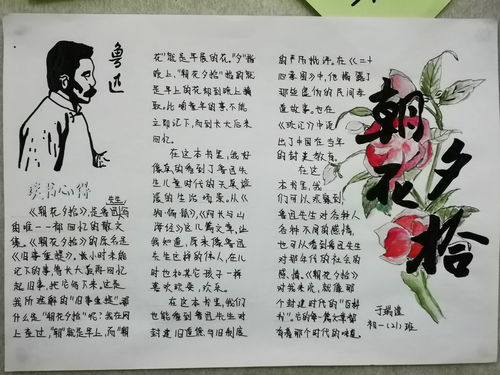 鲁迅
读书心得
《朝花夕拾》是鲁迅先生写
的唯一一部回忆的散文
集。《朝花夕拾》的原名是
《旧事重提》。
记下的事,等长大后再回忆
起旧事,把它写下来,这是
我所理解的“旧事重提”,那
什么是“朝花夕拾”呢?我在网
上查过,“朝”就是早上,而“朝
花”就是早晨的花,“夕”指
晚上,“朝花夕拾”指的就
是早上的花却到晚上摘
取。比喻童年的事,不能
立即记下,而到长大后来
回忆。
在这本书里,我好
像真的看到了鲁迅先
生儿童时代的天真浪
漫的生活场景。从《
狗·猫·鼠》,《阿长与山
海经》这几篇文章,让
我知道,原来像鲁迅
先生这样的伟人,在儿
时也和其它孩子一样
喜欢玩耍,欢乐。
在这本书里,我们
也能看到鲁迅先生对
封建旧道德、与旧制度
的严厉批评。在《二十
四孝图》中,他揭露了
那些虚伪的民间孝
道故事。也在
《琐记》中道
出了中国在当年
的封建教育。
在这
本书里,我
们可以观察到
鲁迅先生对各种人
各种不同的感情,
也可以看到鲁迅先生
对那年代的社会的
感情。《朝花夕拾》
对我来说,就像那
个封建时代的“百科
书”。它的每一篇文章都
有着那个时代的味道。
朝花
夕拾
初一(21)班